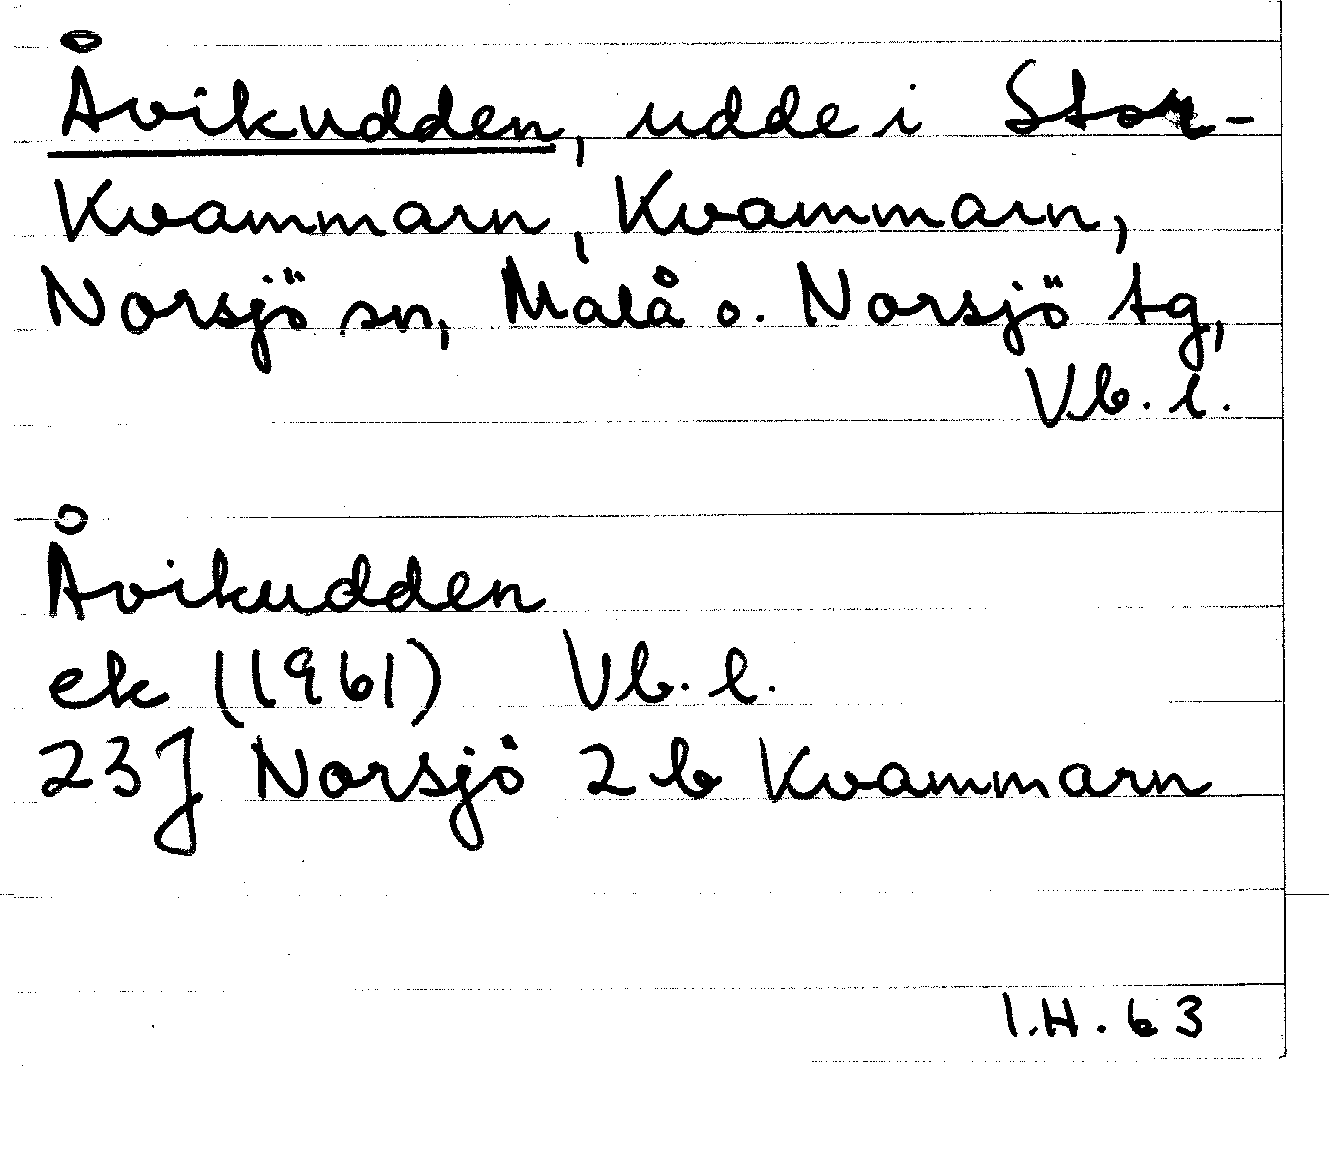 Åvikudden, udde i Stor-
Kvammarn, Kvammarn,
Norsjö sn, Malå o. Norsjö tg,
Vb. l.
Åvikudden
ek (1961) Vb. l.
23J Norsjö 2 b Kvammarn
I.H. 63